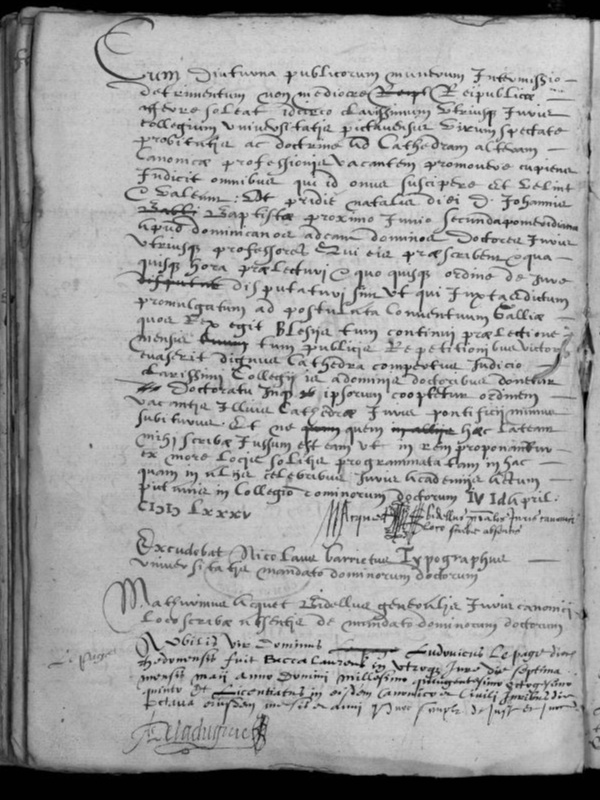 Cum diuturna publicorum munerum Intermissio
detrimentum non mediocre Reipublicae
afferre soleat idcirco clarissimum Utriusq Juris
collegium universitatis pictavensis virum spectate
probitatis ac doctrine ad Cathedram alteram
Canonicae professionis vacantem promovere cupiens
Indicit omnibus qui id onus suscipere et velint
& valeant: Ut pridie natalis diei D. Johannis
Baptistae proximo Junio secunda pomeridiana
apud dominicanos adeant dominos doctores Juris
utriusque professores Qui eis praescribent & qua
quisque hora praelecturi & quo quisque ordine de Jure
disputaturi sint Ut qui Juxta edictum
promulgatum ad postulata Conventuum Galliae
quos Rex egit Blesiis tum continui praelectione
mensis tum publicis Repetitionibus victor
evaserit dignus Cathedra compertus Judicio
clarissimi Collegii is a dominis doctoribus donetur
Doctoratu Inq ipsorum cooptetur ordinem
vacantis Illius Cathedrae Juris pontificii munus
subiturus. Et ne quem haec lateant
mihi scribae Jussum est eam ut in rem proponantur
ex more locis solitis programmata tam in hac
quam in aliis celebribus Juris Academiis actum
putavis in Collegio dominorum doctorum IV Id April.
CIƆ IƆ LXXXV
Macquet bidellus gnalis Juris canonici
loco scribe absentis
Excudebat Nicolaus barrietus Typographus
universitatis mandato dominorum doctorum
Mathurinus Acquet Bidellus generalis Juris canonici
loco scribae absentis de mandato dominorum doctorum
Nobilis vir Dominus Ludovicus Le page dioc
Redonensis fuit Baccalaureus in utroq Jure die septima
mensis maii anno Domini millesimo quingentesimo octogesimo
quinto Et Licentiatus in eisdem canonico et Civili Juribus die
octava eiusdem mensis et anni